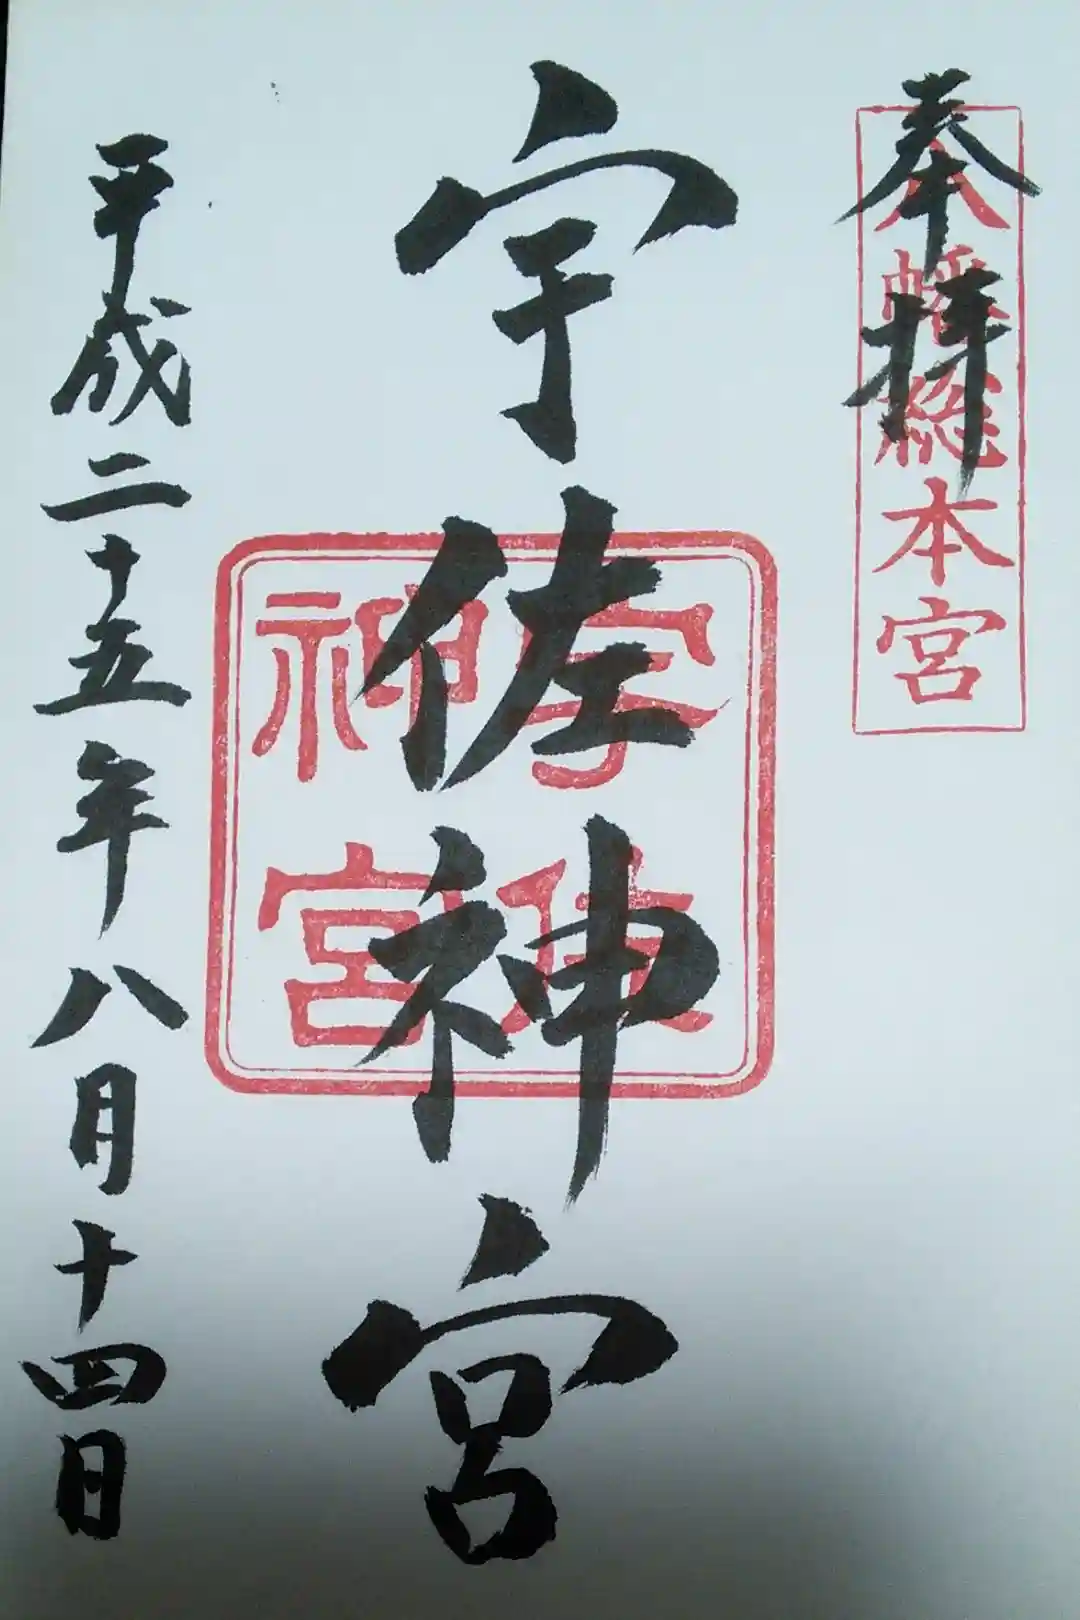 奉拝
八幡総本宮
宇佐神宮
宇佐
神宮
平成二十五年八月十四日